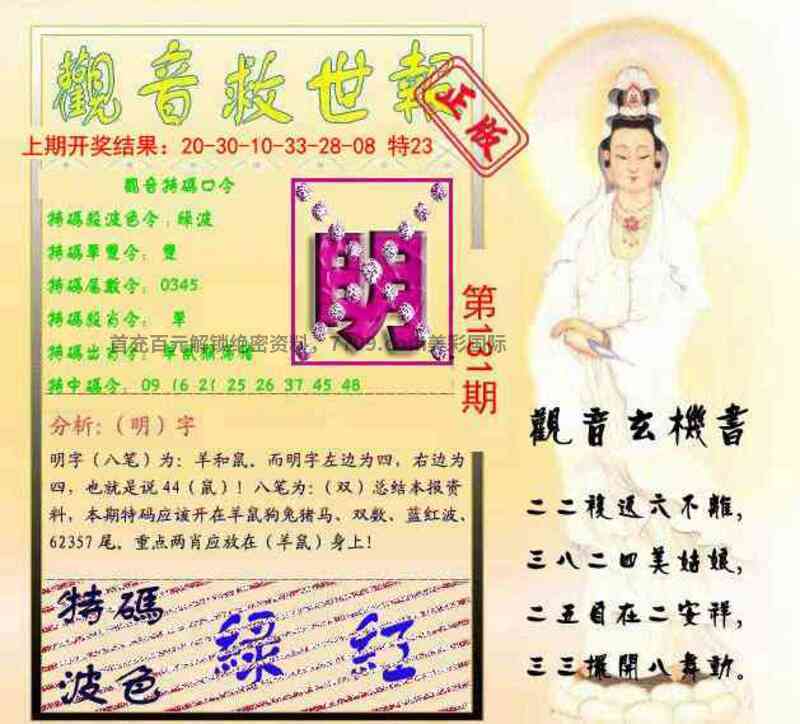 觀音救世報
正版
上期开奖结果：20-30-10-33-28-08 特23
觀音特碼口令
特碼殺波色令：綠波
特碼單雙令：雙
特碼尾數令：0345
特碼殺肖令： 單
特碼出肖令：
首充百元解锁绝密资料，
美彩国际
特中碼令：09 16 21 25 26 37 45 48
明
第131期
分析：（明）字
明字（八笔）为：羊和鼠．而明字左边为四，右边为
四，也就是说44（鼠）！八笔为：（双）总结本报资
料，本期特码应该开在羊鼠狗兔猪马、双数、蓝红波、
62357尾．重点两肖应放在（羊鼠）身上！
特碼
波色
綠 紅
觀音玄機書
二二複返六不離，
三八二四美姑娘，
二五自在二安祥，
三三擺開八舞動。